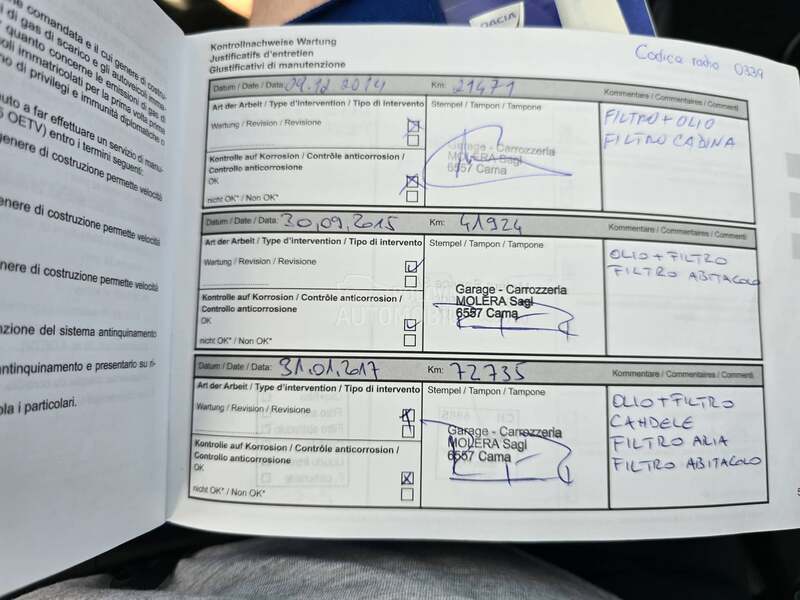 DACIA
e comandata e il cui genere di costru-
di gas di scarico e gli autoveicoli
quanto concerne le emissioni di gas di
oli immatricolati per la prima volta prima
no di privilegi e immunità diplomatiche o
uto a far effettuare un servizio di manu-
OETV) entro i termini seguenti:
genere di costruzione permette velocità
enere di costruzione permette velocità
nere di costruzione permette velocità
nzione del sistema antinquinamento
antinquinamento e presentarlo su ri-
ola i particolari.
Kontrollnachweise Wartung
Justificatifs d'entretien
Giustificativi di manutenzione
Codica radio 0339
Datum / Date / Data: 09.12 2014 Km: 21471 Kommentare / Commentaires / Commenti
Art der Arbeit / Type d'intervention / Tipo di intervento
Stempel / Tampon / Tampone
Wartung / Revision / Revisione
Kontrolle auf Korrosion / Contrôle anticorrosion /
Controllo anticorrosione
OK
nicht OK* / Non OK*
Garage - Carrozzeria
MOLERA Sagl
6557 Cama
FILTRO + OLIO
FILTRO CABINA
Datum / Date / Data: 30,09,2015 Km: 41924 Kommentare / Commentaires / Commenti
Art der Arbeit / Type d'intervention / Tipo di intervento
Stempel / Tampon / Tampone
Wartung / Revision / Revisione
Kontrolle auf Korrosion / Contrôle anticorrosion /
Controllo anticorrosione
OK
nicht OK* / Non OK*
Garage - Carrozzeria
MOLERA Sagl
6557 Cama
OLIO + FILTRO
FILTRO ABITACOLO
Datum / Date / Data: 31.01.2017 Km: 72735 Kommentare / Commentaires / Commenti
Art der Arbeit / Type d'intervention / Tipo di intervento
Stempel / Tampon / Tampone
Wartung / Revision / Revisione
Kontrolle auf Korrosion / Contrôle anticorrosion /
Controllo anticorrosione
OK
nicht OK* / Non OK*
Garage - Carrozzeria
MOLERA Sagl
6557 Cama
OLIO + FILTRO
CANDELE
FILTRO ARIA
FILTRO ABITACOLO